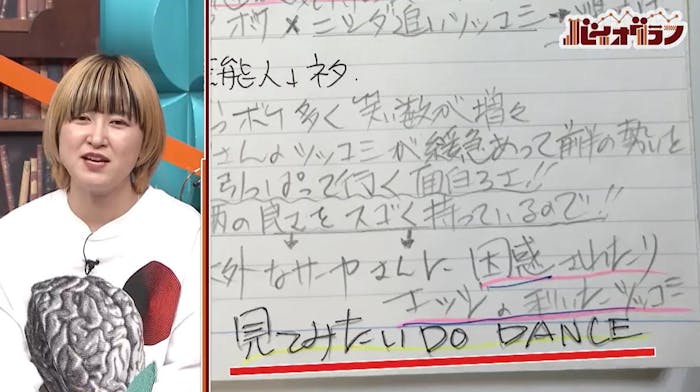 ボケ × ニシダ追いツッコミ →
バイオグラン
芸能人↓ネタ.
ボケ多く 笑い数が増々
さんのツッコミが緩急あって前半の勢いと
引っぱって行く面白ろエ!!
の良さをスゴく持っているので!!
外なサーヤさんに困惑されたり
エッジの利いたツッコミ
見てみたい DO DANCE